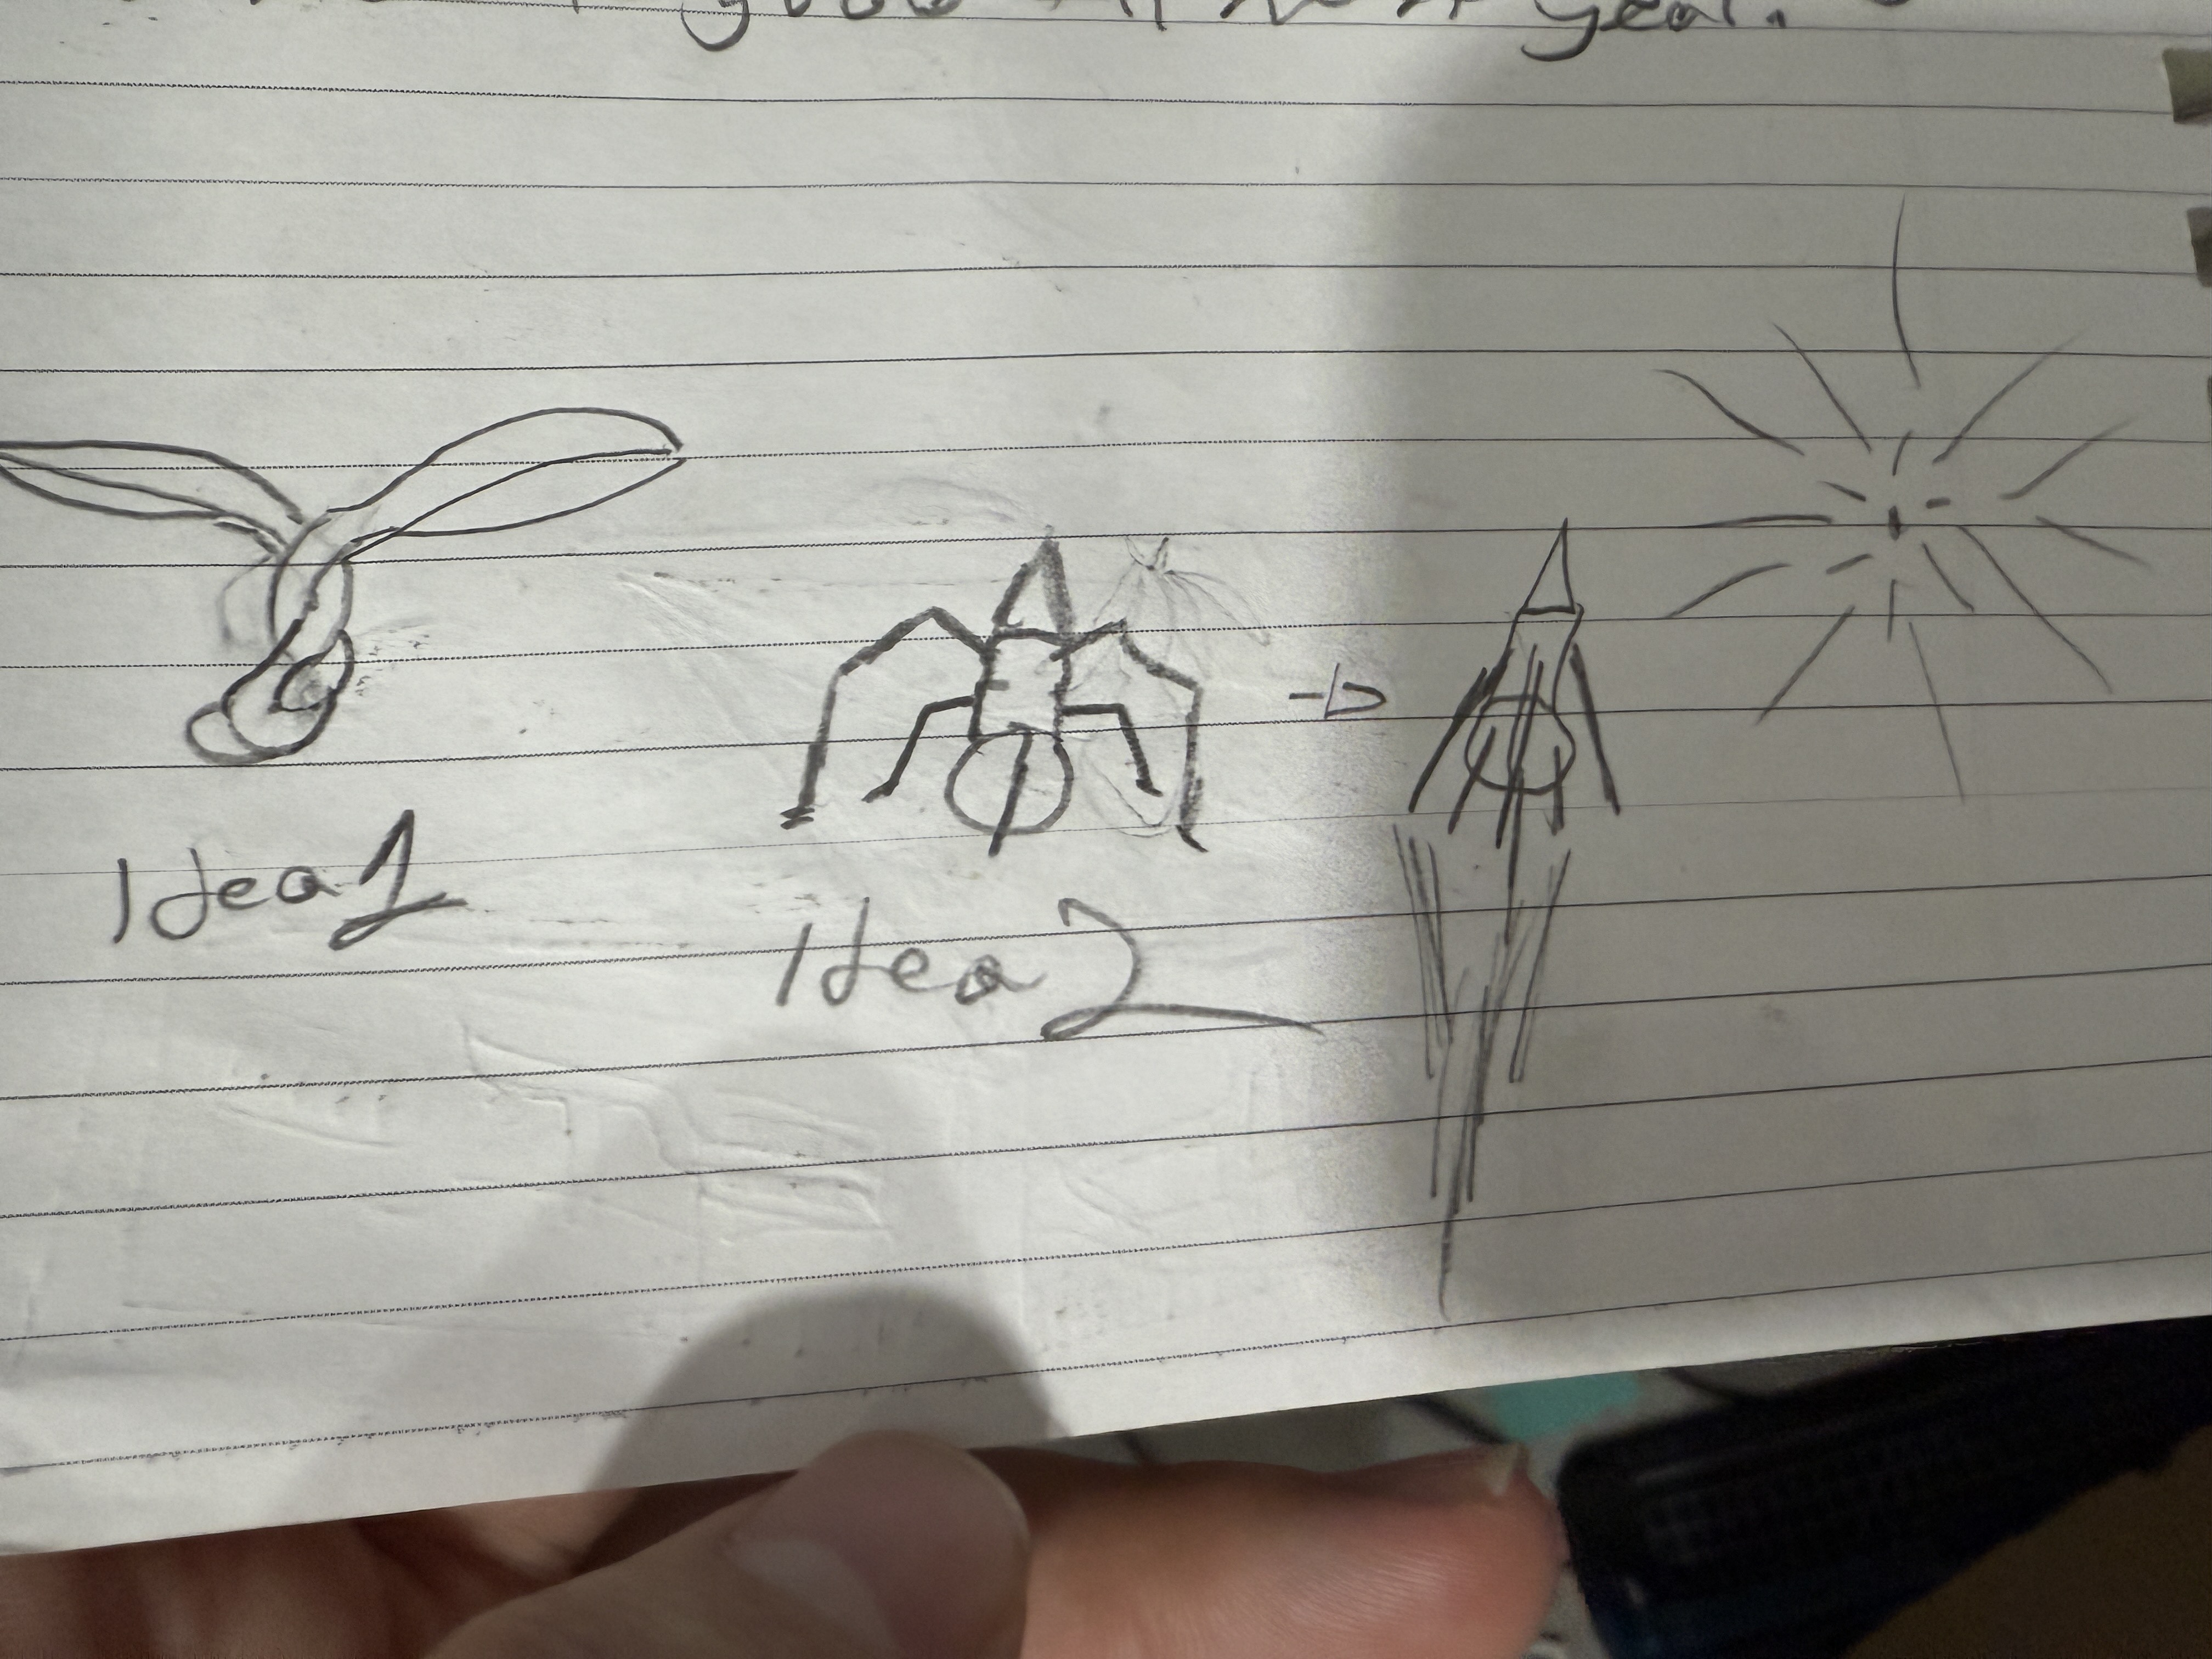 good year.
Idea 1
Idea 2